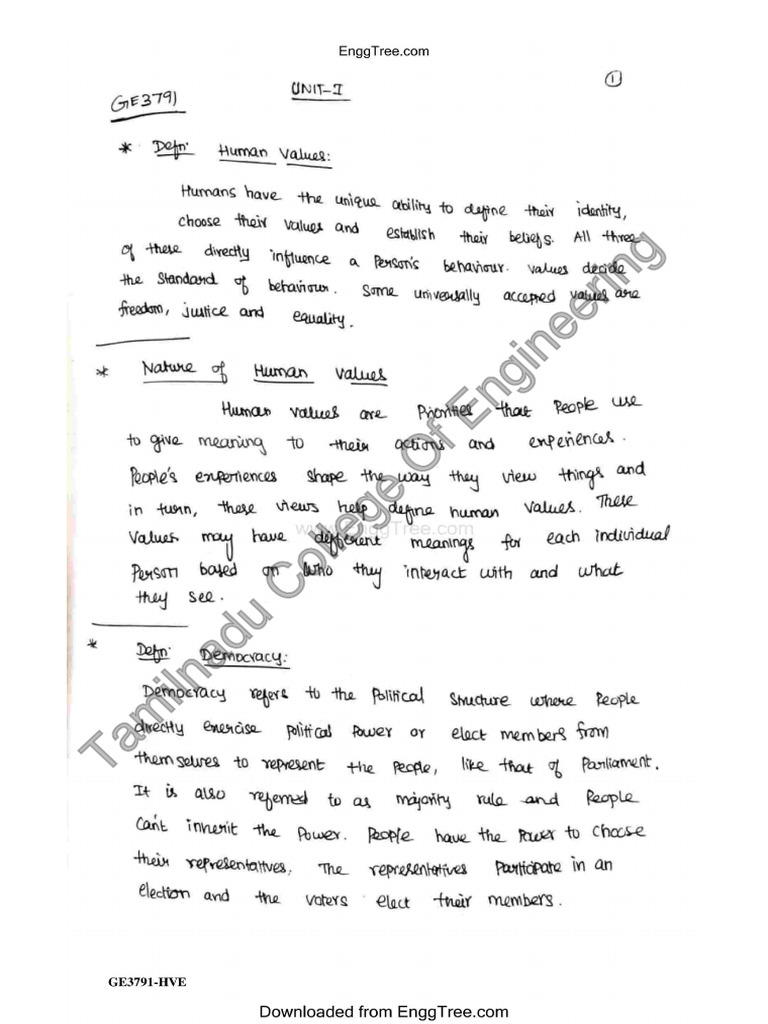 EnggTree.com
UNIT-I
1
GE3791
* Defn: Human Values:
Humans have the unique ability to define their identity,
choose their values and establish their beliefs. All three
of these directly influence a Person's behaviour. values decide
the standard of behaviour. Some universally accepred values are
freedom, justice and equality.
* Nature of Human values
Human values are Priorities that People use
to give meaning to their actions and experiences.
People's experiences shape the way they view things and
in turn, these views help define human values. These
www.EnggTree.com
Values may have different meanings for each individual
Person based on who they interact with and what
they see.
* Defn: Democracy:
Democracy refers to the Political structure where People
directly exercise political Power or elect members from
themselves to represent the People, like that of Parliament.
It is also referred to as majority rule and People
Can't inherit the Power. People have the Power to choose
their representatives. The representatives Participate in an
election and the voters elect their members.
Tamilnadu College Of Engineering
GE3791-HVE
Downloaded from EnggTree.com